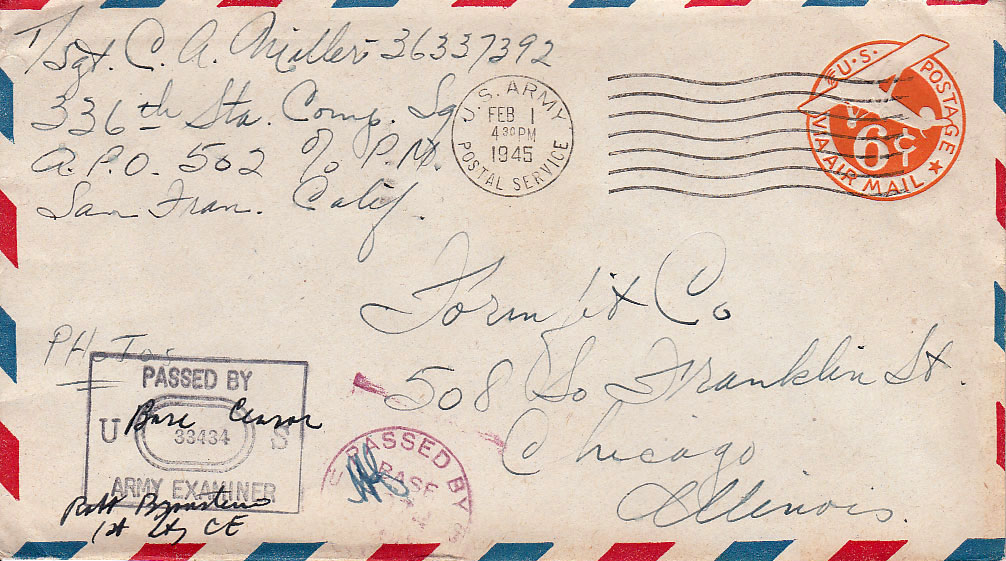 T/Sgt. C. A. Miller 36337392
336th Sta. Comp. Sq
A.P.O. 502 c/o P.M.
San Fran. Calif.
U.S. ARMY
FEB 1
4 30 PM
1945
POSTAL SERVICE
U.S. POSTAGE
6¢
VIA AIR MAIL
Formfit Co
508 So Franklin St.
Chicago
Illinois.
PHoTos
PASSED BY
Base Censor
U 33434 S
ARMY EXAMINER
1st Lt, CE
PASSED BY
BASE